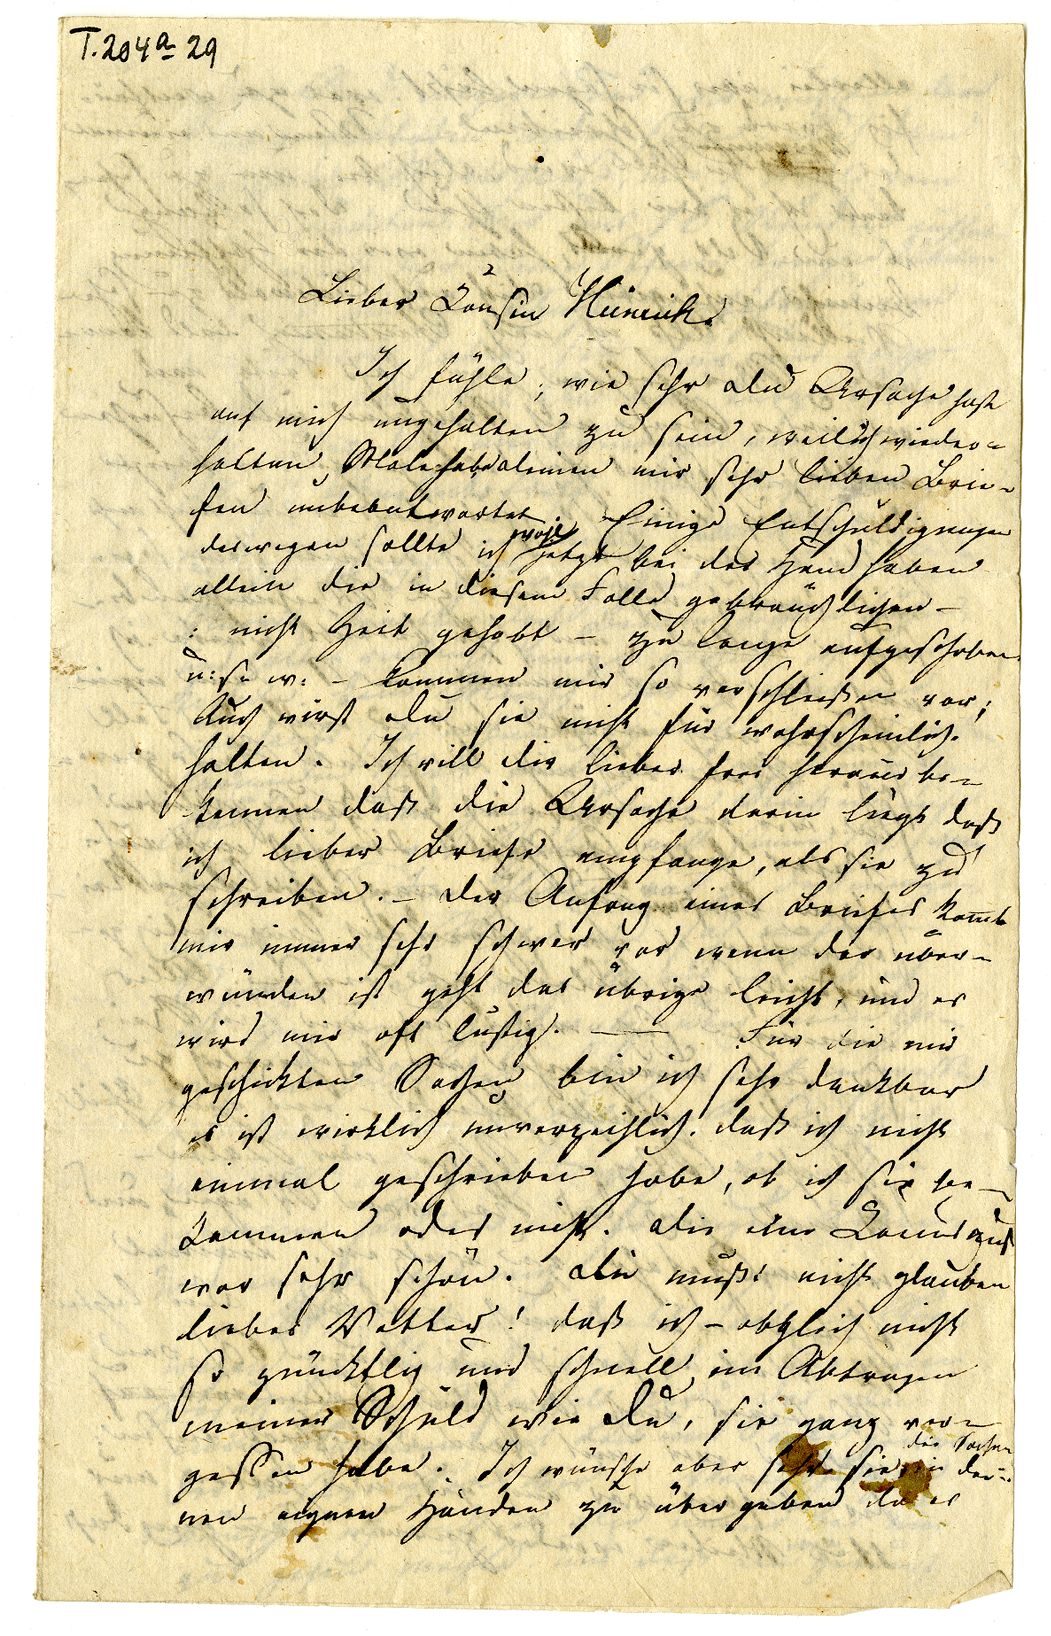 T. 204a 29
Lieber Cousin Heinrich.
Ich fühle, wie sehr du Ursache hast
auf mich ungehalten zu sein, weil ich wieder=
holten Male habe deinen mir sehr lieben Brie=
fen unbeantwortet. Einige Entschuldigungen
deswegen sollte ich wohl jetzt bei der Hand haben
allein die in diesem Falle gebräuchlichen –
: nicht Zeit gehabt – zu lange aufgeschoben
u: s. w: – kommen mir so verschlissen vor;
Auch wirst du sie nicht für wahrscheinlich
halten. Ich will dir lieber frei heraus be=
kennen daß die Ursache darin liegt daß
ich lieber Briefe empfange, als sie zu
schreiben. – Der Anfang eines Briefes kommt
mir immer sehr schwer vor wenn der über=
wunden ist geht das übrige leicht, und es
wird mir oft lustig. — Für die mir
geschickten Sachen bin ich sehr dankbar
es ist wirklich unverzeihlich. daß ich nicht
einmal geschrieben habe, ob ich sie be=
kommen oder nicht. die eine
war sehr schön. Du mußt nicht glauben
lieber Vetter! daß ich – obgleich nicht
so pünktlig und schnell im Abtragen
meiner Schuld wie Du, sie ganz ver=
gessen habe. Ich wünsche aber sehr sie die Sachen in dei=
nen eignen Händen zu übergeben da es